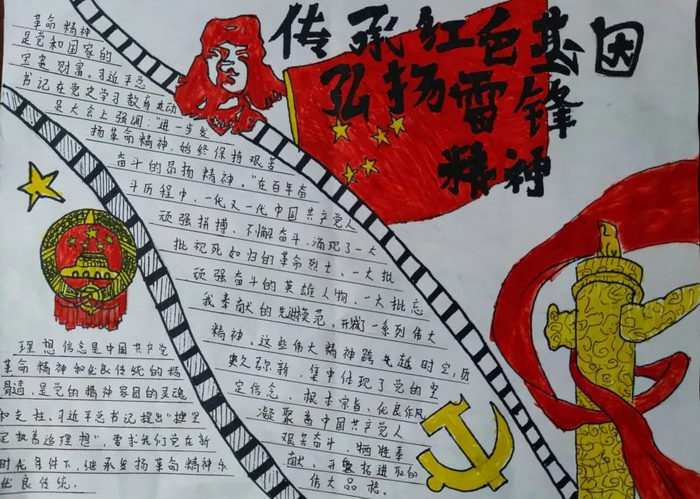 传承红色基因
弘扬雷锋
精神
革命精神
是党和国家的
宝贵财富，习近平总
书记在党史学习教育动
员大会上强调："进一步发
扬革命精神，始终保持艰苦
奋斗的昂扬精神。"在百年奋
斗历程中，一代又一代中国共产党人
顽强拼搏、不懈奋斗，涌现了一大
批视死如归的革命烈士、一大批
顽强奋斗的英雄人物、一大批忘
我奉献的先进模范，形成一系列伟大
精神，这些伟大精神跨越时空，历
久弥新，集中体现了党的坚
定信念、根本宗旨、优良作风
凝聚着中国共产党人
艰苦奋斗、牺牲奉
献、开拓进取的
伟大品格。
理想信念是中国共产党
革命精神和优良传统的精
是党的精神家园的灵魂
和支柱，习近平总书记提出"坚
定执着追理想"，要求我们党在新
时代条件下，继承发扬革命精神与
优良传统。